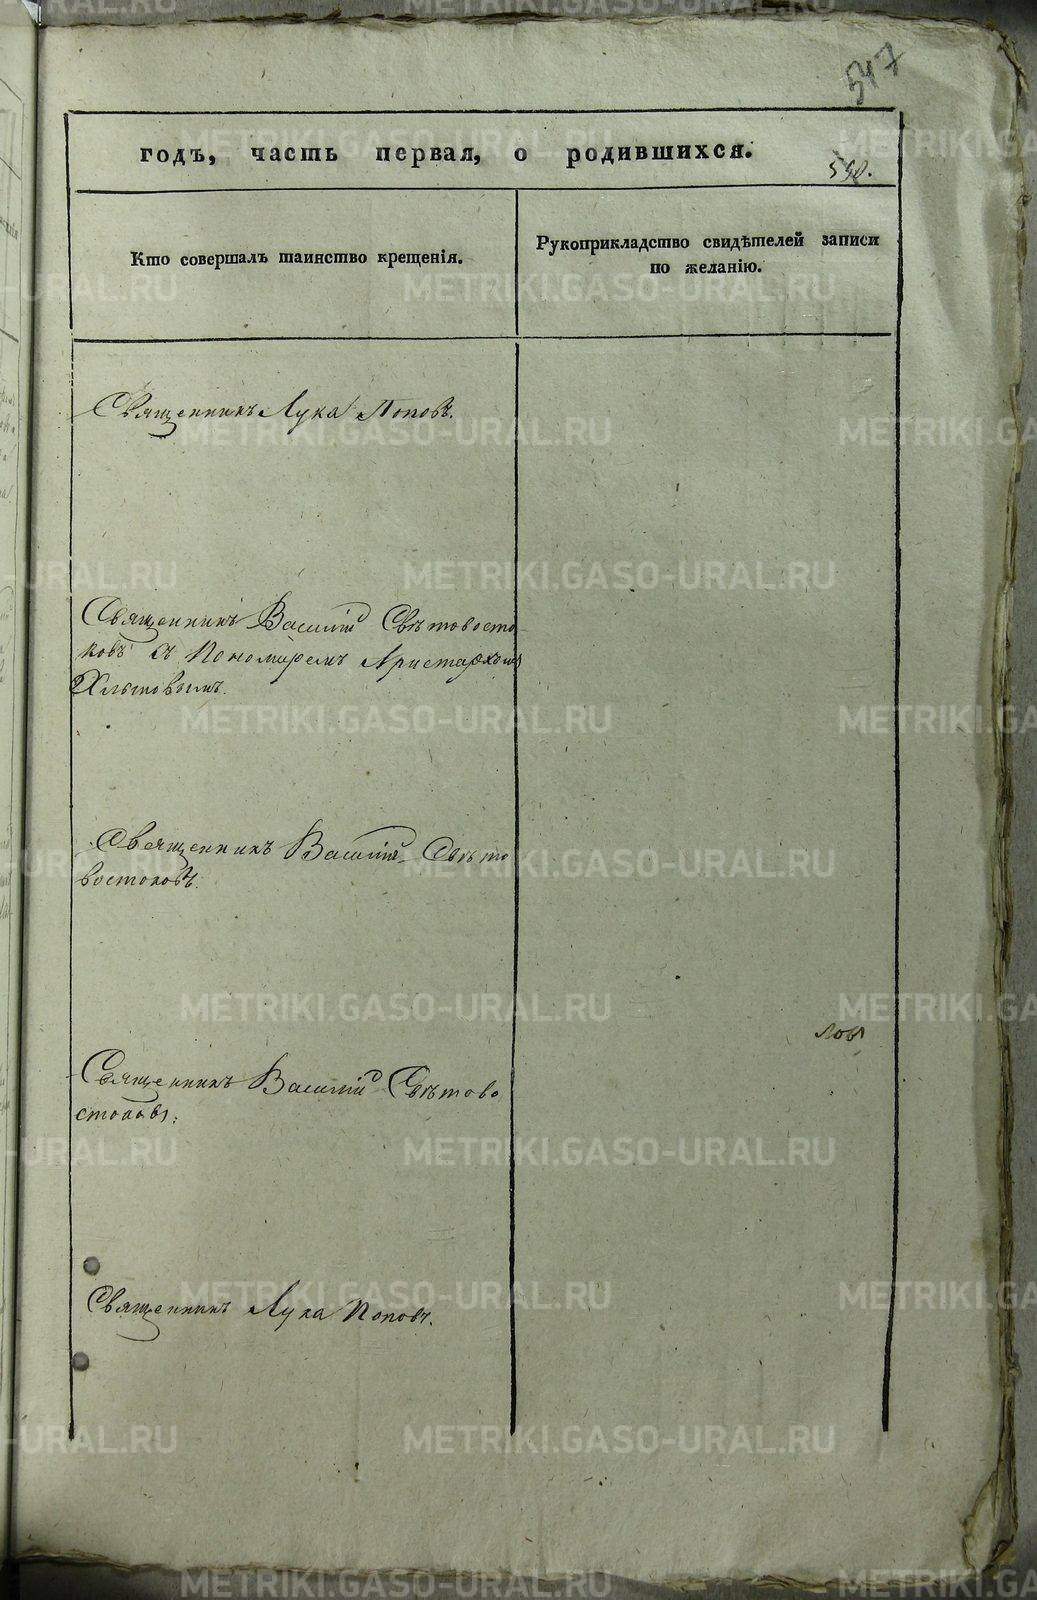 547
годъ, часть первая, о родившихся.
590.
Кто совершалъ таинство крещенія.
Рукоприкладство свидѣтелей записи
по желанію.
Священникъ Лука Поповъ.
Священникъ Василій Свѣтовосто-
ковъ съ Пономаремъ Аристархомъ
Священникъ Василій Свѣто
востоковъ.
Священникъ Василій Свѣтово
стоковъ.
Священникъ Лука Поповъ.
METRIKI.GASO-URAL.RU